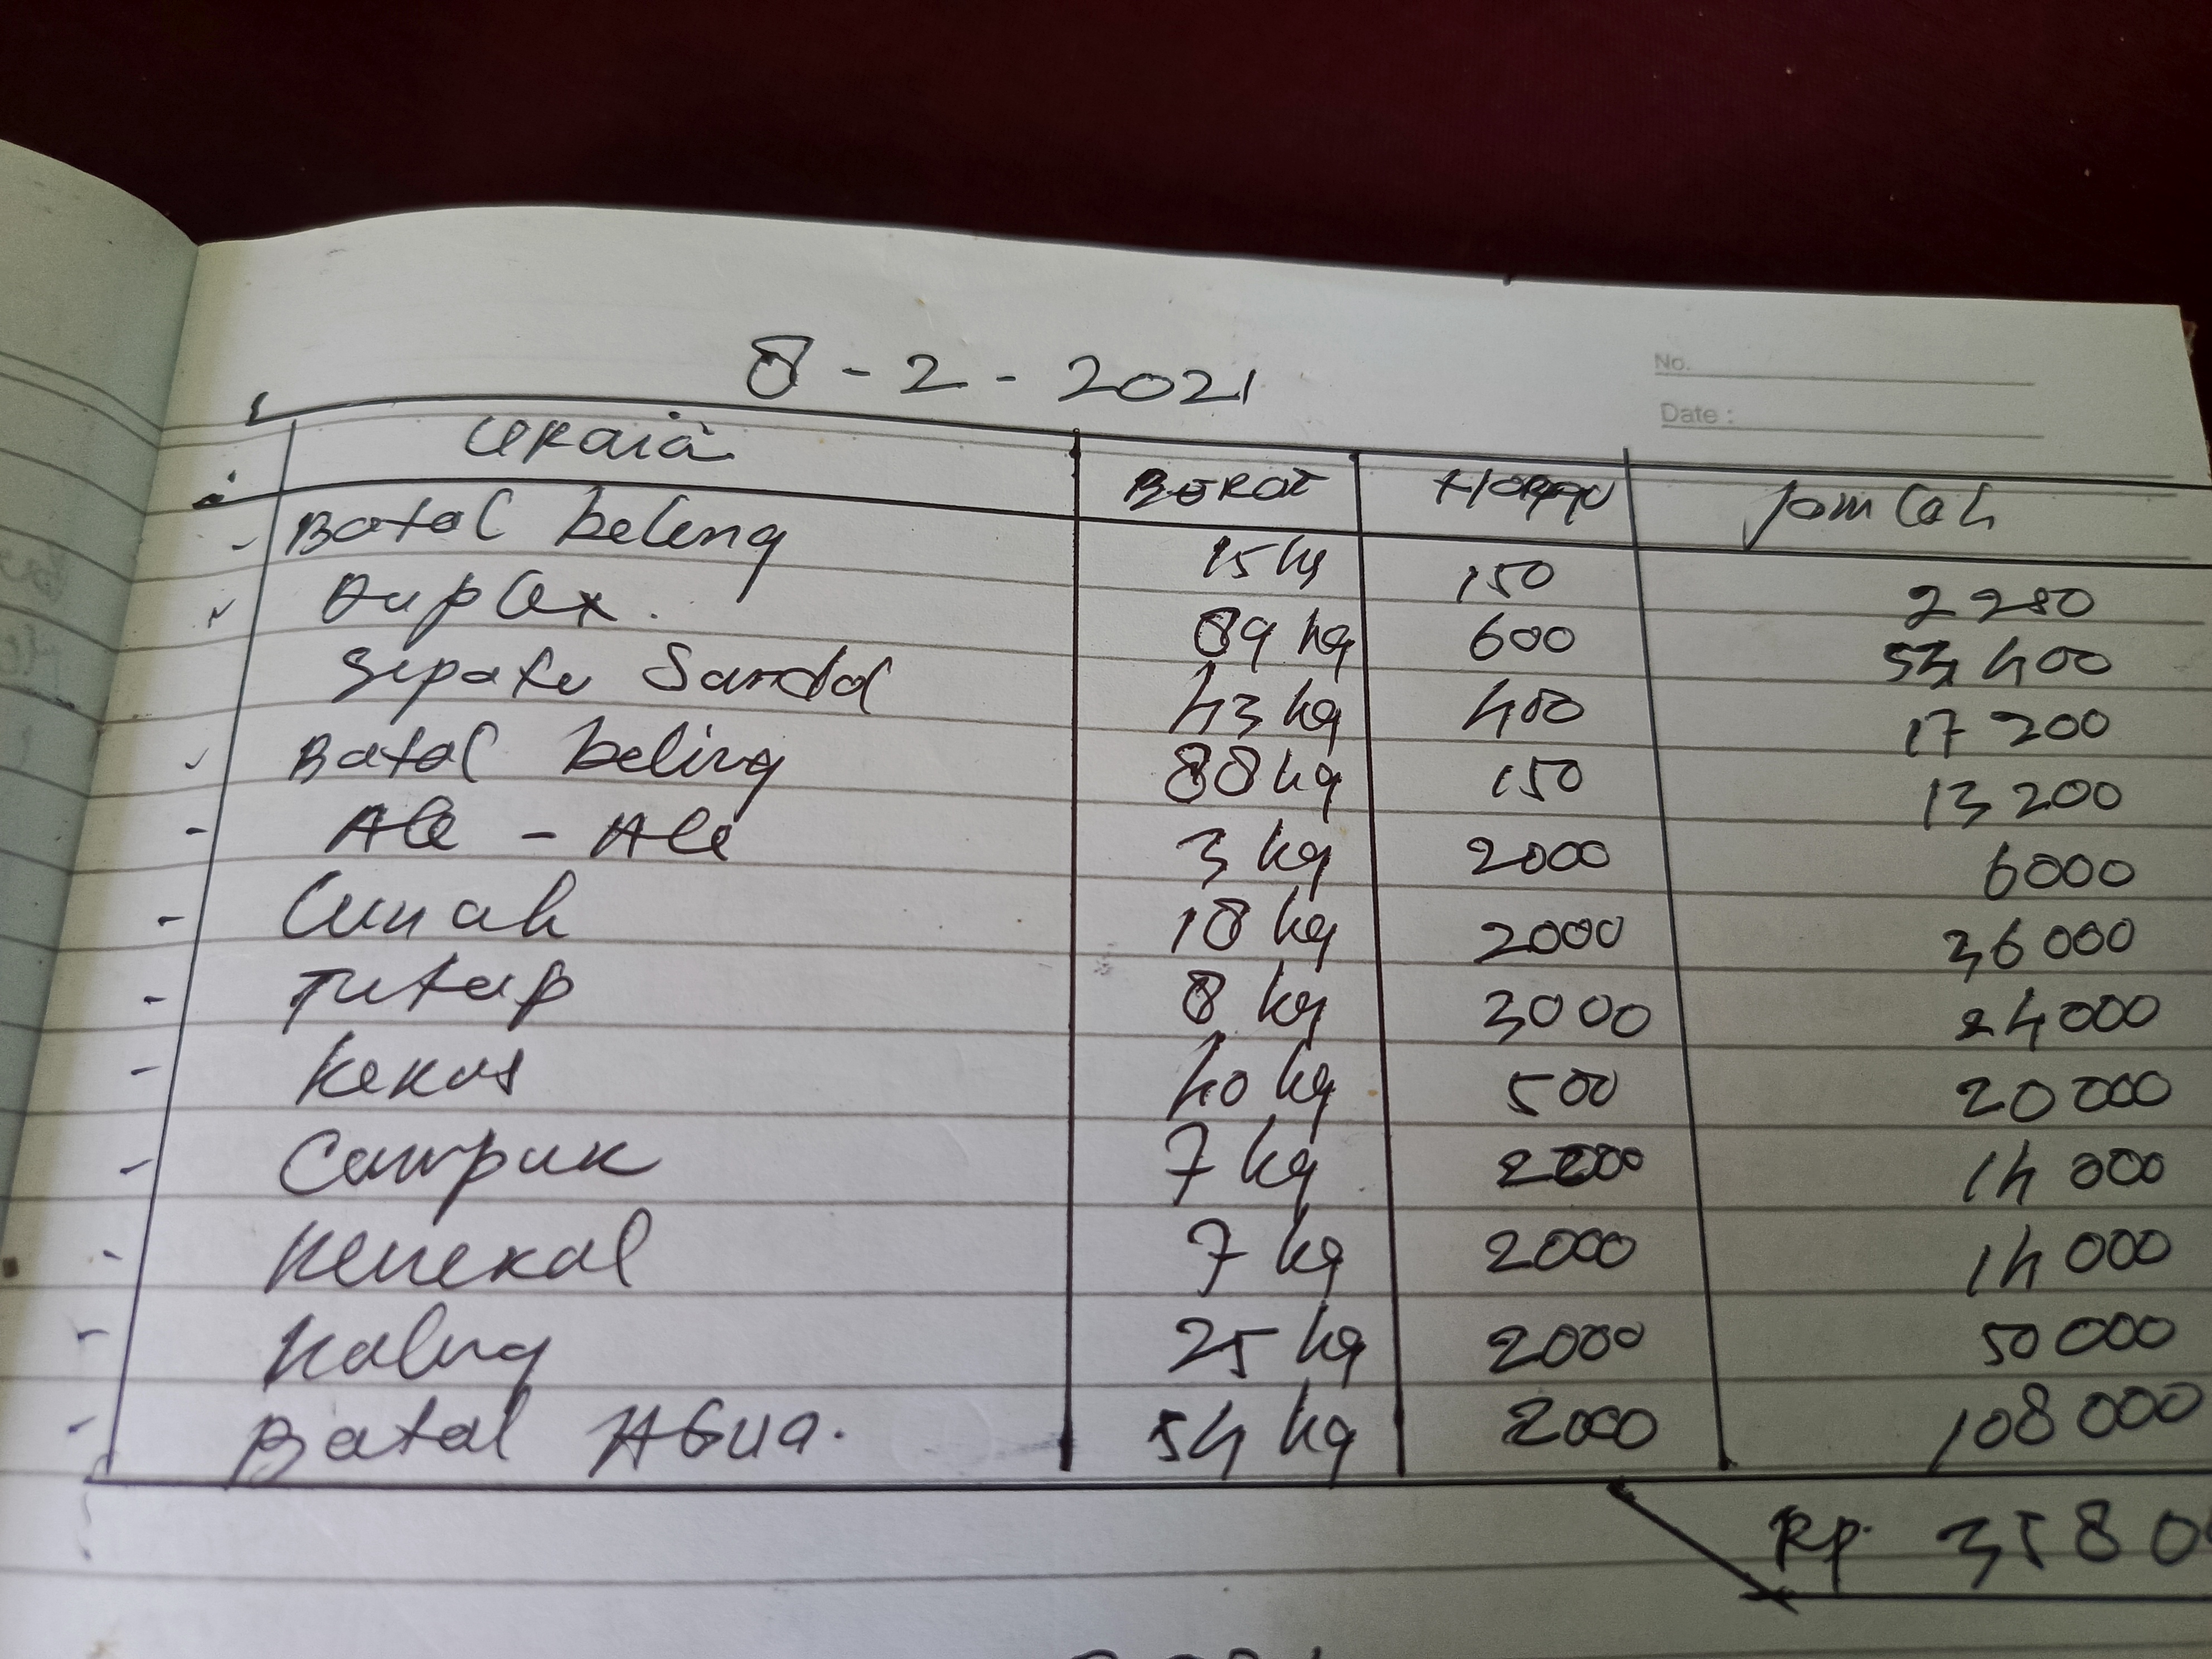 8 - 2 - 2021
No.
Date :
URaia BERAT Harga Jam Lah
Batol beleng 15 kg 150 2250
Duplex. 89 kg 600 53 400
Sepatu Sandal 43 kg 400 17 200
Batol beling 88 kg 150 13 200
Ale - Ale 3 kg 2000 6000
Lunah 18 kg 2000 36 000
Tutup 8 kg 3000 24000
Keras 40 kg 500 20 000
Campur 7 kg 2000 14 000
7 kg 2000 14 000
Kaleng 25 kg 2000 50 000
Batal AGua. 54 kg 2000 108 000
Rp. 3580